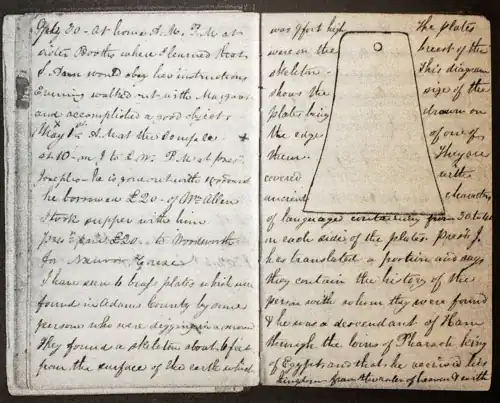 April 30- at home A.M. P.M at
sister Booths where I learned that
S. Ann would obey her instructions
Evening walked out with Margaret
and accomplished a good object
May 1st A.M at the temple &c. +
at 10 m. J to L. W. P.M at Prest
Josephs- he is gone out with
he borrowed £20- of Wm Allen
Took supper with him
Prest paid £20- to Woodworth
for Nauvoo House
I have seen 6 brass plates which were
found in Adams County by some
persons who were digging in a mound
They found a skeleton about 6 feet
from the surface of the earth which
was 9 foot high The plates
were on the breast of the
skeleton- This diagram
shows the size of the
plates being drawn on
the edge of one of
them. They are
covered with
ancient characters
of language containing from 30 to 40
on each side of the plates. Prest J.
has translated a portion and says
they contain the history of the
person with whom they were found
& he was a descendant of Ham
through the loins of Pharaoh king
of Egypt, and that he received his
kingdom from the ruler of heaven & earth